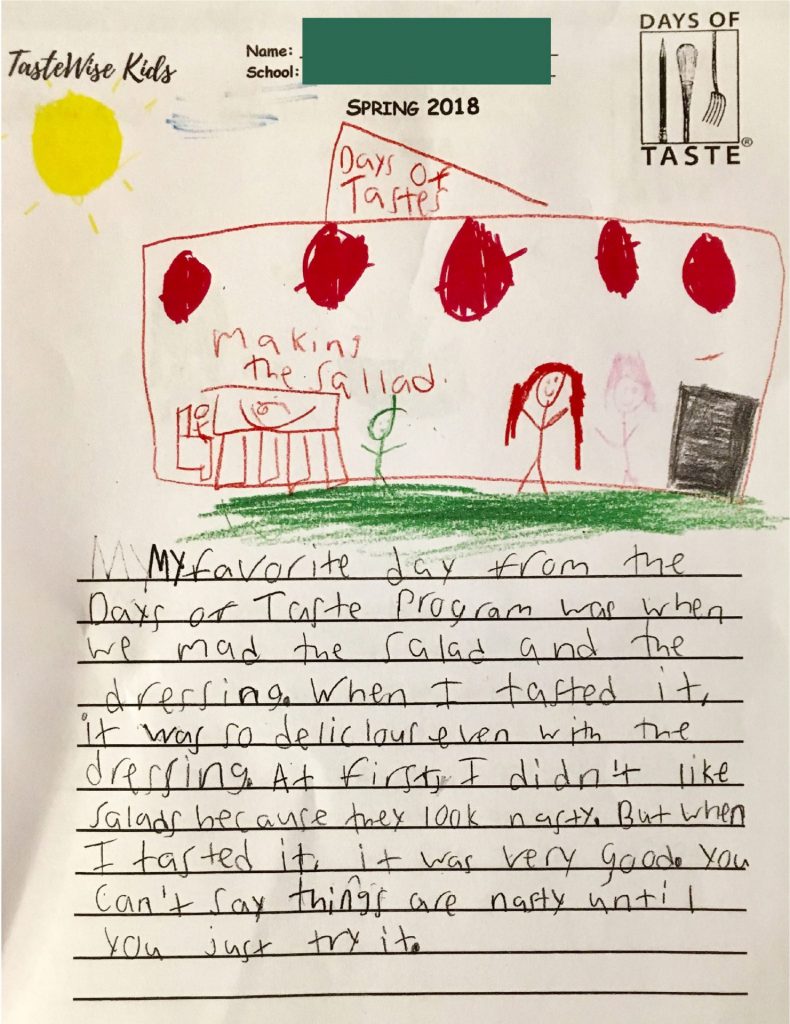 TasteWise Kids
Name:
School:
DAYS OF
TASTE®
SPRING 2018
Days Of
Tastes
Making
the Sallad.
My My favorite day from the
Days of Taste Program was when
we mad the salad and the
dressing. When I tasted it,
it was so delicious even with the
dressing. At first, I didn't like
salads because they look nasty. But when
I tasted it, it was very good. You
can't say things are nasty until
you just try it.